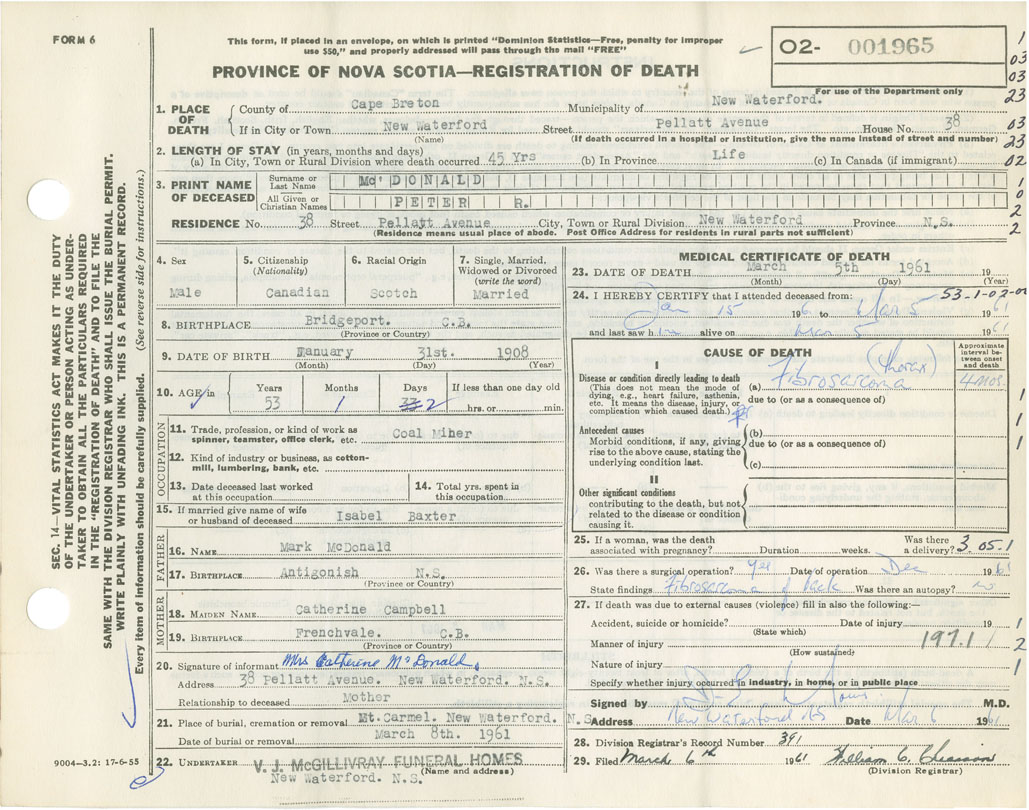 FORM 6
This form, if placed in an envelope, on which is printed "Dominion Statistics—Free, penalty for improper
use $50," and properly addressed will pass through the mail "FREE"
02- 001965
For use of the Department only
PROVINCE OF NOVA SCOTIA—REGISTRATION OF DEATH
1. PLACE OF DEATH
County of Cape Breton Municipality of New Waterford.
If in City or Town New Waterford Street Pellatt Avenue House No. 38
(Name) (If death occurred in a hospital or institution, give the name instead of street and number)
2. LENGTH OF STAY (in years, months and days)
(a) In City, Town or Rural Division where death occurred 45 Yrs (b) In Province Life (c) In Canada (if immigrant)
3. PRINT NAME OF DECEASED
Surname or Last Name Mc' DONALD
All Given or Christian Names PETER R.
RESIDENCE No. 38 Street Pellatt Avenue City, Town or Rural Division New Waterford Province N.S.
(Residence means usual place of abode. Post Office Address for residents in rural parts not sufficient)
1
03
03
23
03
23
02
1
0
2
2
SEC. 14—VITAL STATISTICS ACT MAKES IT THE DUTY
OF THE UNDERTAKER OR PERSON ACTING AS UNDER-
TAKER TO OBTAIN ALL THE PARTICULARS REQUIRED
IN THE "REGISTRATION OF DEATH" AND TO FILE THE
SAME WITH THE DIVISION REGISTRAR WHO SHALL ISSUE THE BURIAL PERMIT.
WRITE PLAINLY WITH UNFADING INK. THIS IS A PERMANENT RECORD.
Every item of information should be carefully supplied. (See reverse side for instructions.)
4. Sex
Male
5. Citizenship
(Nationality)
Canadian
6. Racial Origin
Scotch
7. Single, Married,
Widowed or Divorced
(write the word)
Married
8. BIRTHPLACE Bridgeport. C.B.
(Province or Country)
9. DATE OF BIRTH January 31st. 1908
(Month) (Day) (Year)
10. AGE in
Years Months Days If less than one day old
53 1 2 hrs. or min.
OCCUPATION
11. Trade, profession, or kind of work as
spinner, teamster, office clerk, etc. Coal Miner
12. Kind of industry or business, as cotton-
mill, lumbering, bank, etc.
13. Date deceased last worked
at this occupation
14. Total yrs. spent in
this occupation
15. If married give name of wife
or husband of deceased Isabel Baxter
FATHER
16. NAME Mark McDonald
17. BIRTHPLACE Antigonish N.S.
(Province or Country)
MOTHER
18. MAIDEN NAME Catherine Campbell
19. BIRTHPLACE Frenchvale. C.B.
(Province or Country)
20. Signature of informant Mrs Catherine McDonald.
Address 38 Pellatt Avenue. New Waterford. N.S.
Relationship to deceased Mother
21. Place of burial, cremation or removal Mt.Carmel. New Waterford. N.S.
Date of burial or removal March 8th. 1961
22. UNDERTAKER V. J. McGILLIVRAY FUNERAL HOMES
(Name and address)
New Waterford. N.S.
9004—3.2: 17-6-55
MEDICAL CERTIFICATE OF DEATH
23. DATE OF DEATH March 5th 1961 19
(Month) (Day) (Year)
24. I HEREBY CERTIFY that I attended deceased from: 53-1-02-02
Jan 15 1961 to Mar 5 1961
and last saw him alive on Mar 5 1961
CAUSE OF DEATH
Approximate
interval be-
tween onset
and death
I
Disease or condition directly leading to death
(This does not mean the mode of
dying, e.g., heart failure, asthenia,
etc. It means the disease, injury, or
complication which caused death.)
(a) Fibrosarcoma (thorax) 4 mos.
due to (or as a consequence of)
Antecedent causes
Morbid conditions, if any, giving
rise to the above cause, stating the
underlying condition last.
(b)
due to (or as a consequence of)
(c)
II
Other significant conditions
contributing to the death, but not
related to the disease or condition
causing it.
1
1
1
25. If a woman, was the death
associated with pregnancy? Duration weeks. Was there
a delivery? 3.05.1
26. Was there a surgical operation? Yes Date of operation Dec 1961
State findings Fibrosarcoma of back Was there an autopsy? no
27. If death was due to external causes (violence) fill in also the following:—
Accident, suicide or homicide? Date of injury 19
(State which)
Manner of injury 197.1
(How sustained)
Nature of injury
Specify whether injury occurred in industry, in home, or in public place
1
2
1
Signed by M.D.
Address New Waterford NS Date Mar 6 1961
28. Division Registrar's Record Number 391
29. Filed March 6th 1961 William C. Chiasson
(Division Registrar)